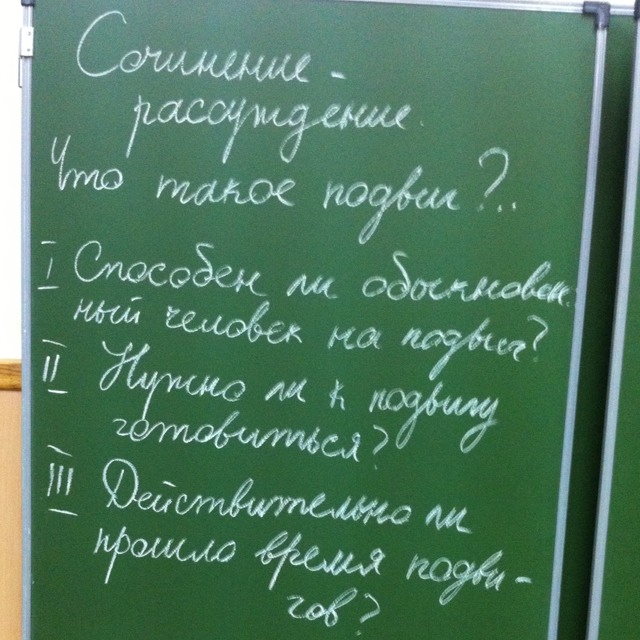 Сочинение-
рассуждение.
Что такое подвиг?..
I Способен ли обыкновен-
ный человек на подвиг?
II Нужно ли к подвигу
готовиться?
III Действительно ли
прошло время подви-
гов?